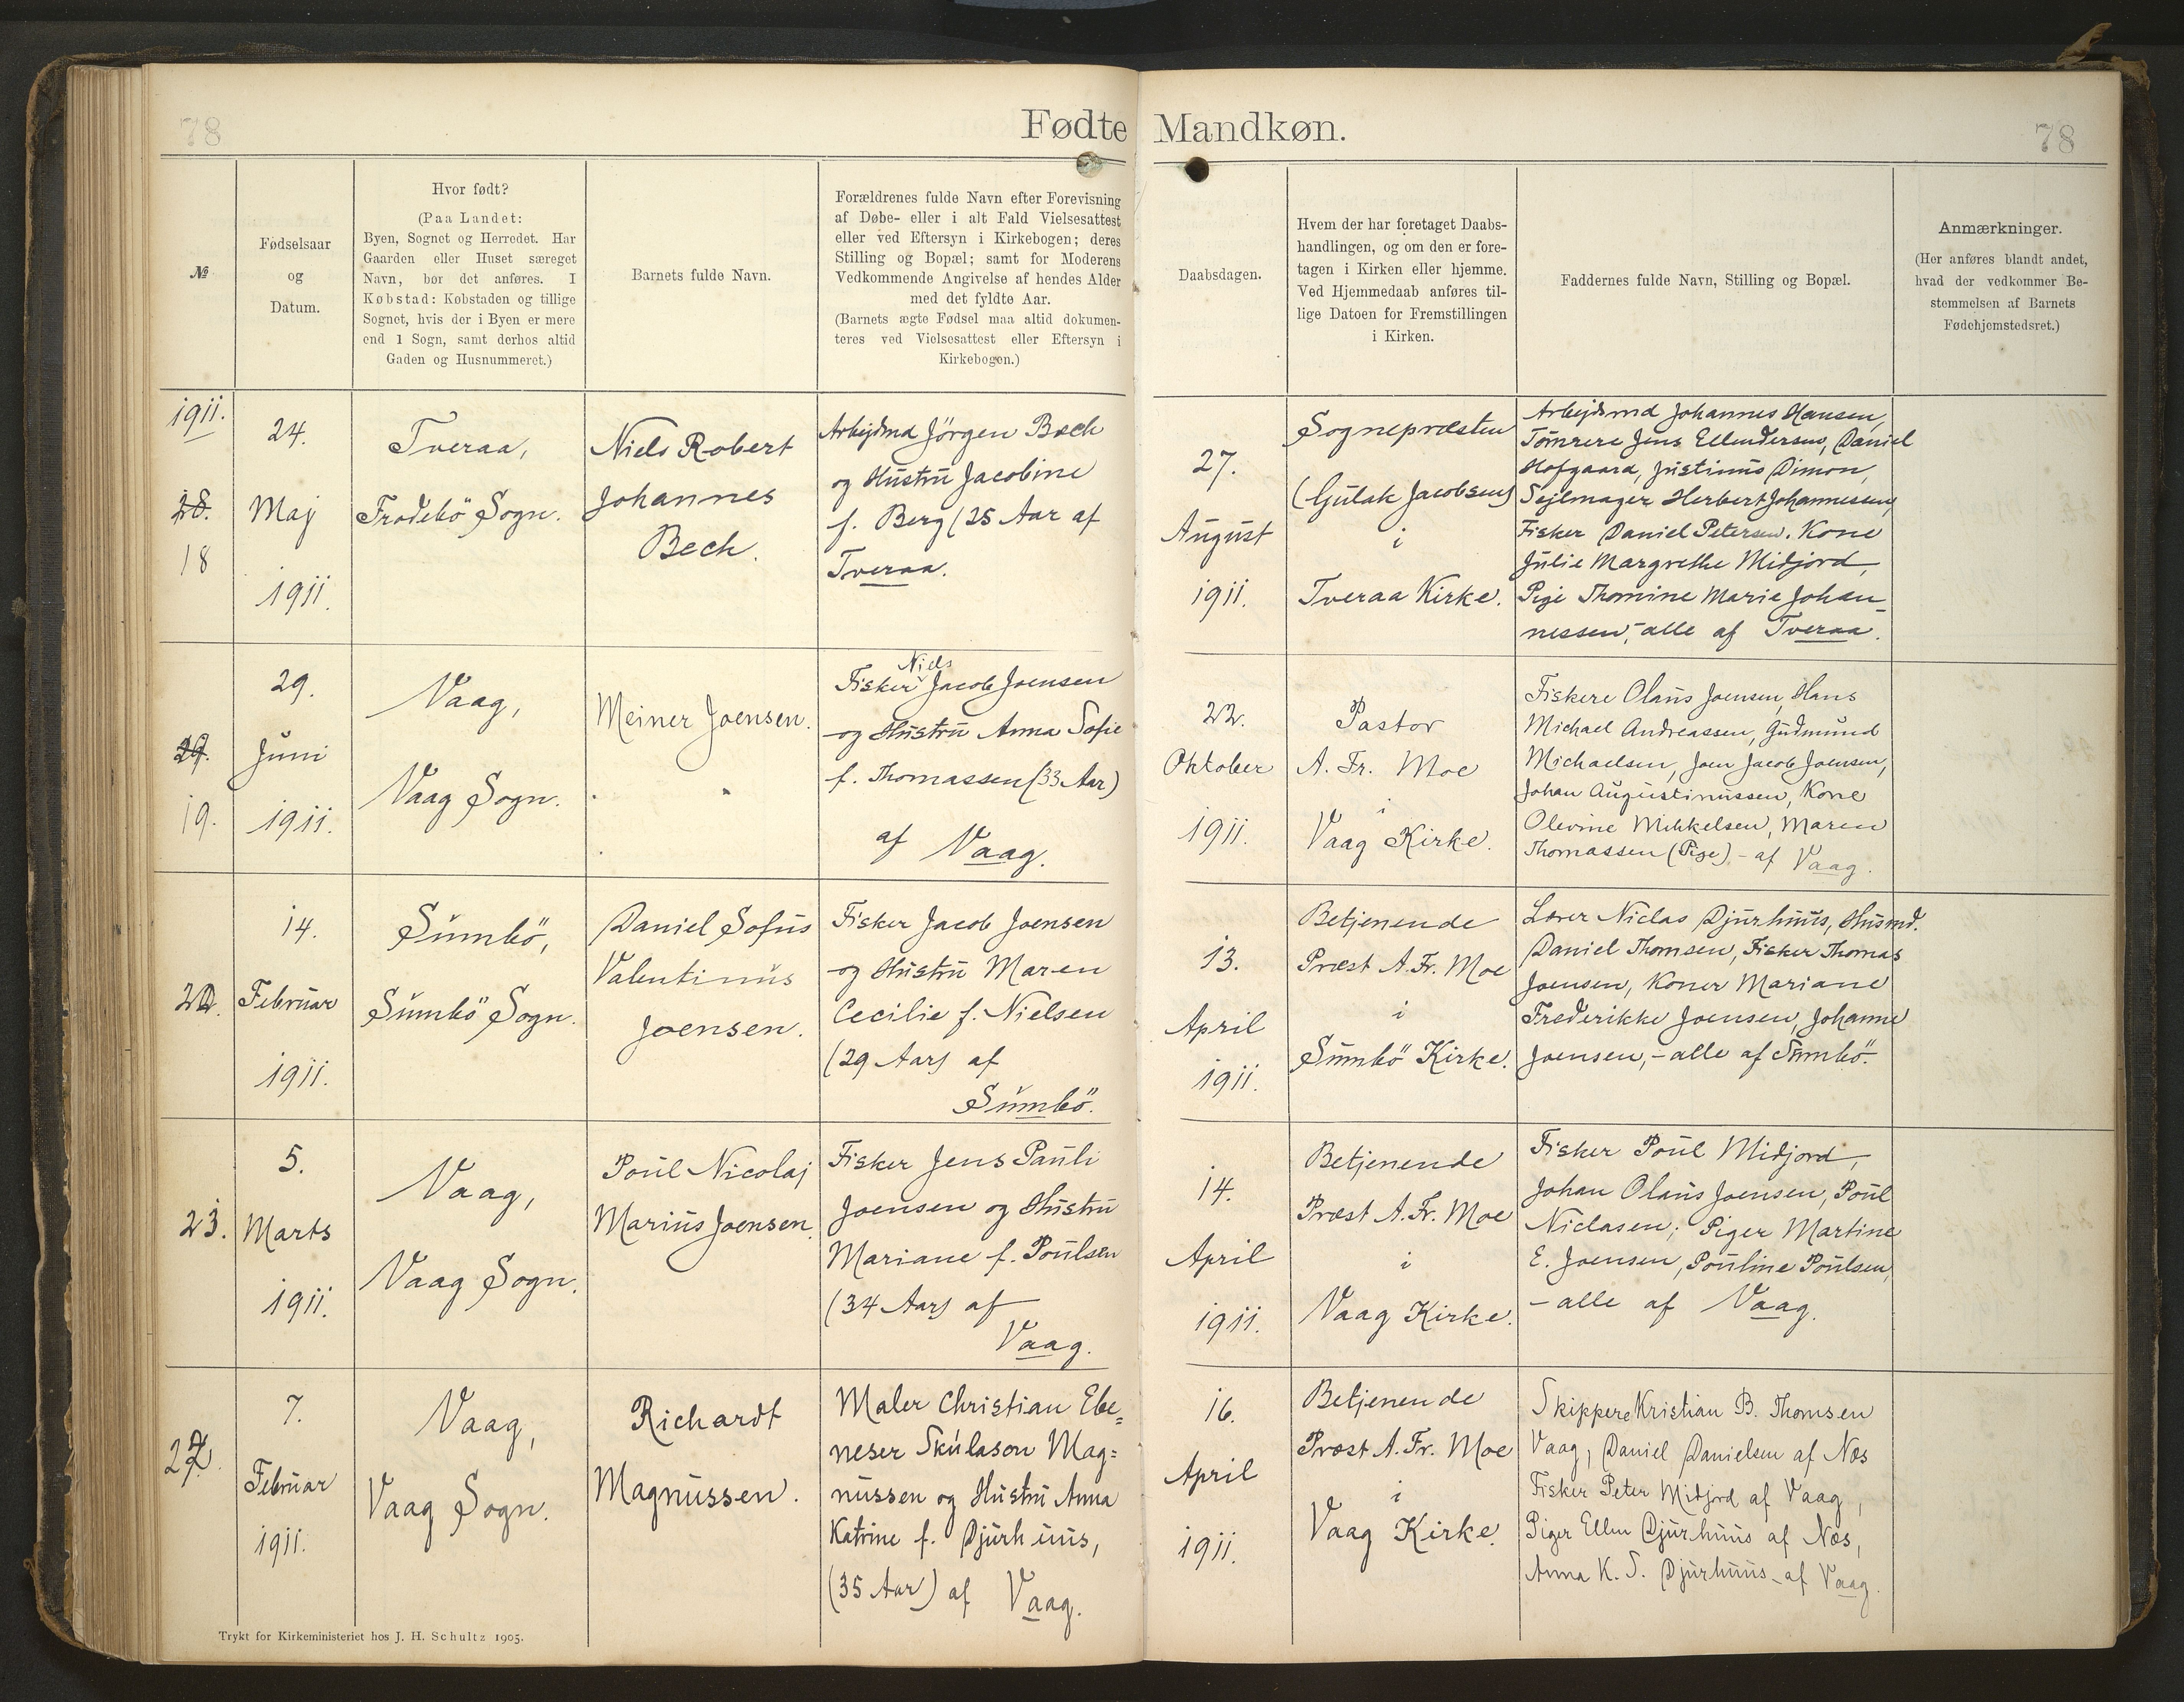 78
Fødte Mandkøn.
78
№
Fødselsaar
og
Datum.
Hvor født?
(Paa Landet:
Byen, Sognet og Herredet. Har
Gaarden eller Huset særeget
Navn, bør det anføres. I
Købstad: Købstaden og tillige
Sognet, hvis der i Byen er mere
end 1 Sogn, samt derhos altid
Gaden og Husnummeret.)
Barnets fulde Navn.
Forældrenes fulde Navn efter Forevisning
af Døbe- eller i alt Fald Vielsesattest
eller ved Eftersyn i Kirkebogen; deres
Stilling og Bopæl; samt for Moderens
Vedkommende Angivelse af hendes Alder
med det fyldte Aar.
(Barnets ægte Fødsel maa altid dokumen-
teres ved Vielsesattest eller Eftersyn i
Kirkebogen.)
Daabsdagen.
Hvem der har foretaget Daabs-
handlingen, og om den er fore-
tagen i Kirken eller hjemme.
Ved Hjemmedaab anføres til-
lige Datoen for Fremstillingen
i Kirken.
Faddernes fulde Navn, Stilling og Bopæl.
Anmærkninger.
(Her anføres blandt andet,
hvad der vedkommer Be-
stemmelsen af Barnets
Fødehjemstedsret.)
1911.
18
24.
Maj
1911.
Tveraa,
Frodebö Sogn.
Niels Robert
Johannes
Bech.
Arbejdsmd Jörgen Bech
og Hustru Jacobine
f. Berg (25 Aar af
Tveraa.
27.
August
1911.
Sognepræsten
(Gulak Jacobsen)
i
Tveraa Kirke.
Arbejdsmd Johannes Hansen,
Tömrere Jens Ellendersen, Daniel
Hofgaard, Justinus Dimon,
Sejlmager Herbert Johannessen,
Fisker Daniel Petersen. Kone
Julie Margrethe Midjord,
Pige Thomine Marie Johan-
nessen,-alle af Tveraa.
19.
29.
Juni
1911.
Vaag,
Vaag Sogn.
Meiner Joensen.
Niels
Fisker Jacob Joensen
og Hustru Anna Sofie
f. Thomassen (33 Aar)
af Vaag.
22.
Oktober
1911.
Pastor
A. Fr. Moe
i
Vaag Kirke.
Fiskere Olaus Joensen, Hans
Michael Andreassen, Gudmund
Michaelsen, Joen Jacob Joensen,
Johan Augustinussen, Kone
Olevine Mikkelsen, Maren
Thomassen (Pige) - af Vaag.
14.
Februar
1911.
Sumbö,
Sumbö Sogn.
Daniel Sofus
Valentinus
Joensen.
Fisker Jacob Joensen
og Hustru Maren
Cecilie f. Nielsen
(29 Aar) af
Sumbö.
13.
April
1911.
Betjenende
Præst A. Fr. Moe
i
Sumbö Kirke.
Lærer Niclas Djurhuus, Husmd.
Daniel Thomsen, Fisker Thomas
Joensen, Koner Mariane
Frederikke Joensen, Johanne
Joensen,-alle af Sumbö.
23.
5.
Marts
1911.
Vaag,
Vaag Sogn.
Poul Nicolaj
Marius Joensen.
Fisker Jens Pauli
Joensen og Hustru
Mariane f. Poulsen
(34 Aar) af
Vaag.
14.
April
1911.
Betjenende
Præst A. Fr. Moe
i
Vaag Kirke.
Fisker Poul Midjord,
Johan Olaus Joensen, Poul
Niclasen; Piger Martine
E. Joensen, Pouline Poulsen,
-alle af Vaag.
7.
Februar
1911.
Vaag,
Vaag Sogn.
Richardt
Magnussen.
Maler Christian Ebe=
neser Skúlason Mag=
nussen og Hustru Anna
Katrine f. Djurhuus,
(35 Aar) af Vaag.
16.
April
1911.
Betjenende
Præst A. Fr. Moe
i
Vaag Kirke.
Skippere Kristian B. Thomsen
Vaag, Daniel Danielsen af Næs
Fisker Peter Midjord af Vaag,
Piger Ellen Djurhuus af Næs,
Anna K. S. Djurhuus - af Vaag.
Trykt for Kirkeministeriet hos J. H. Schultz 1905.